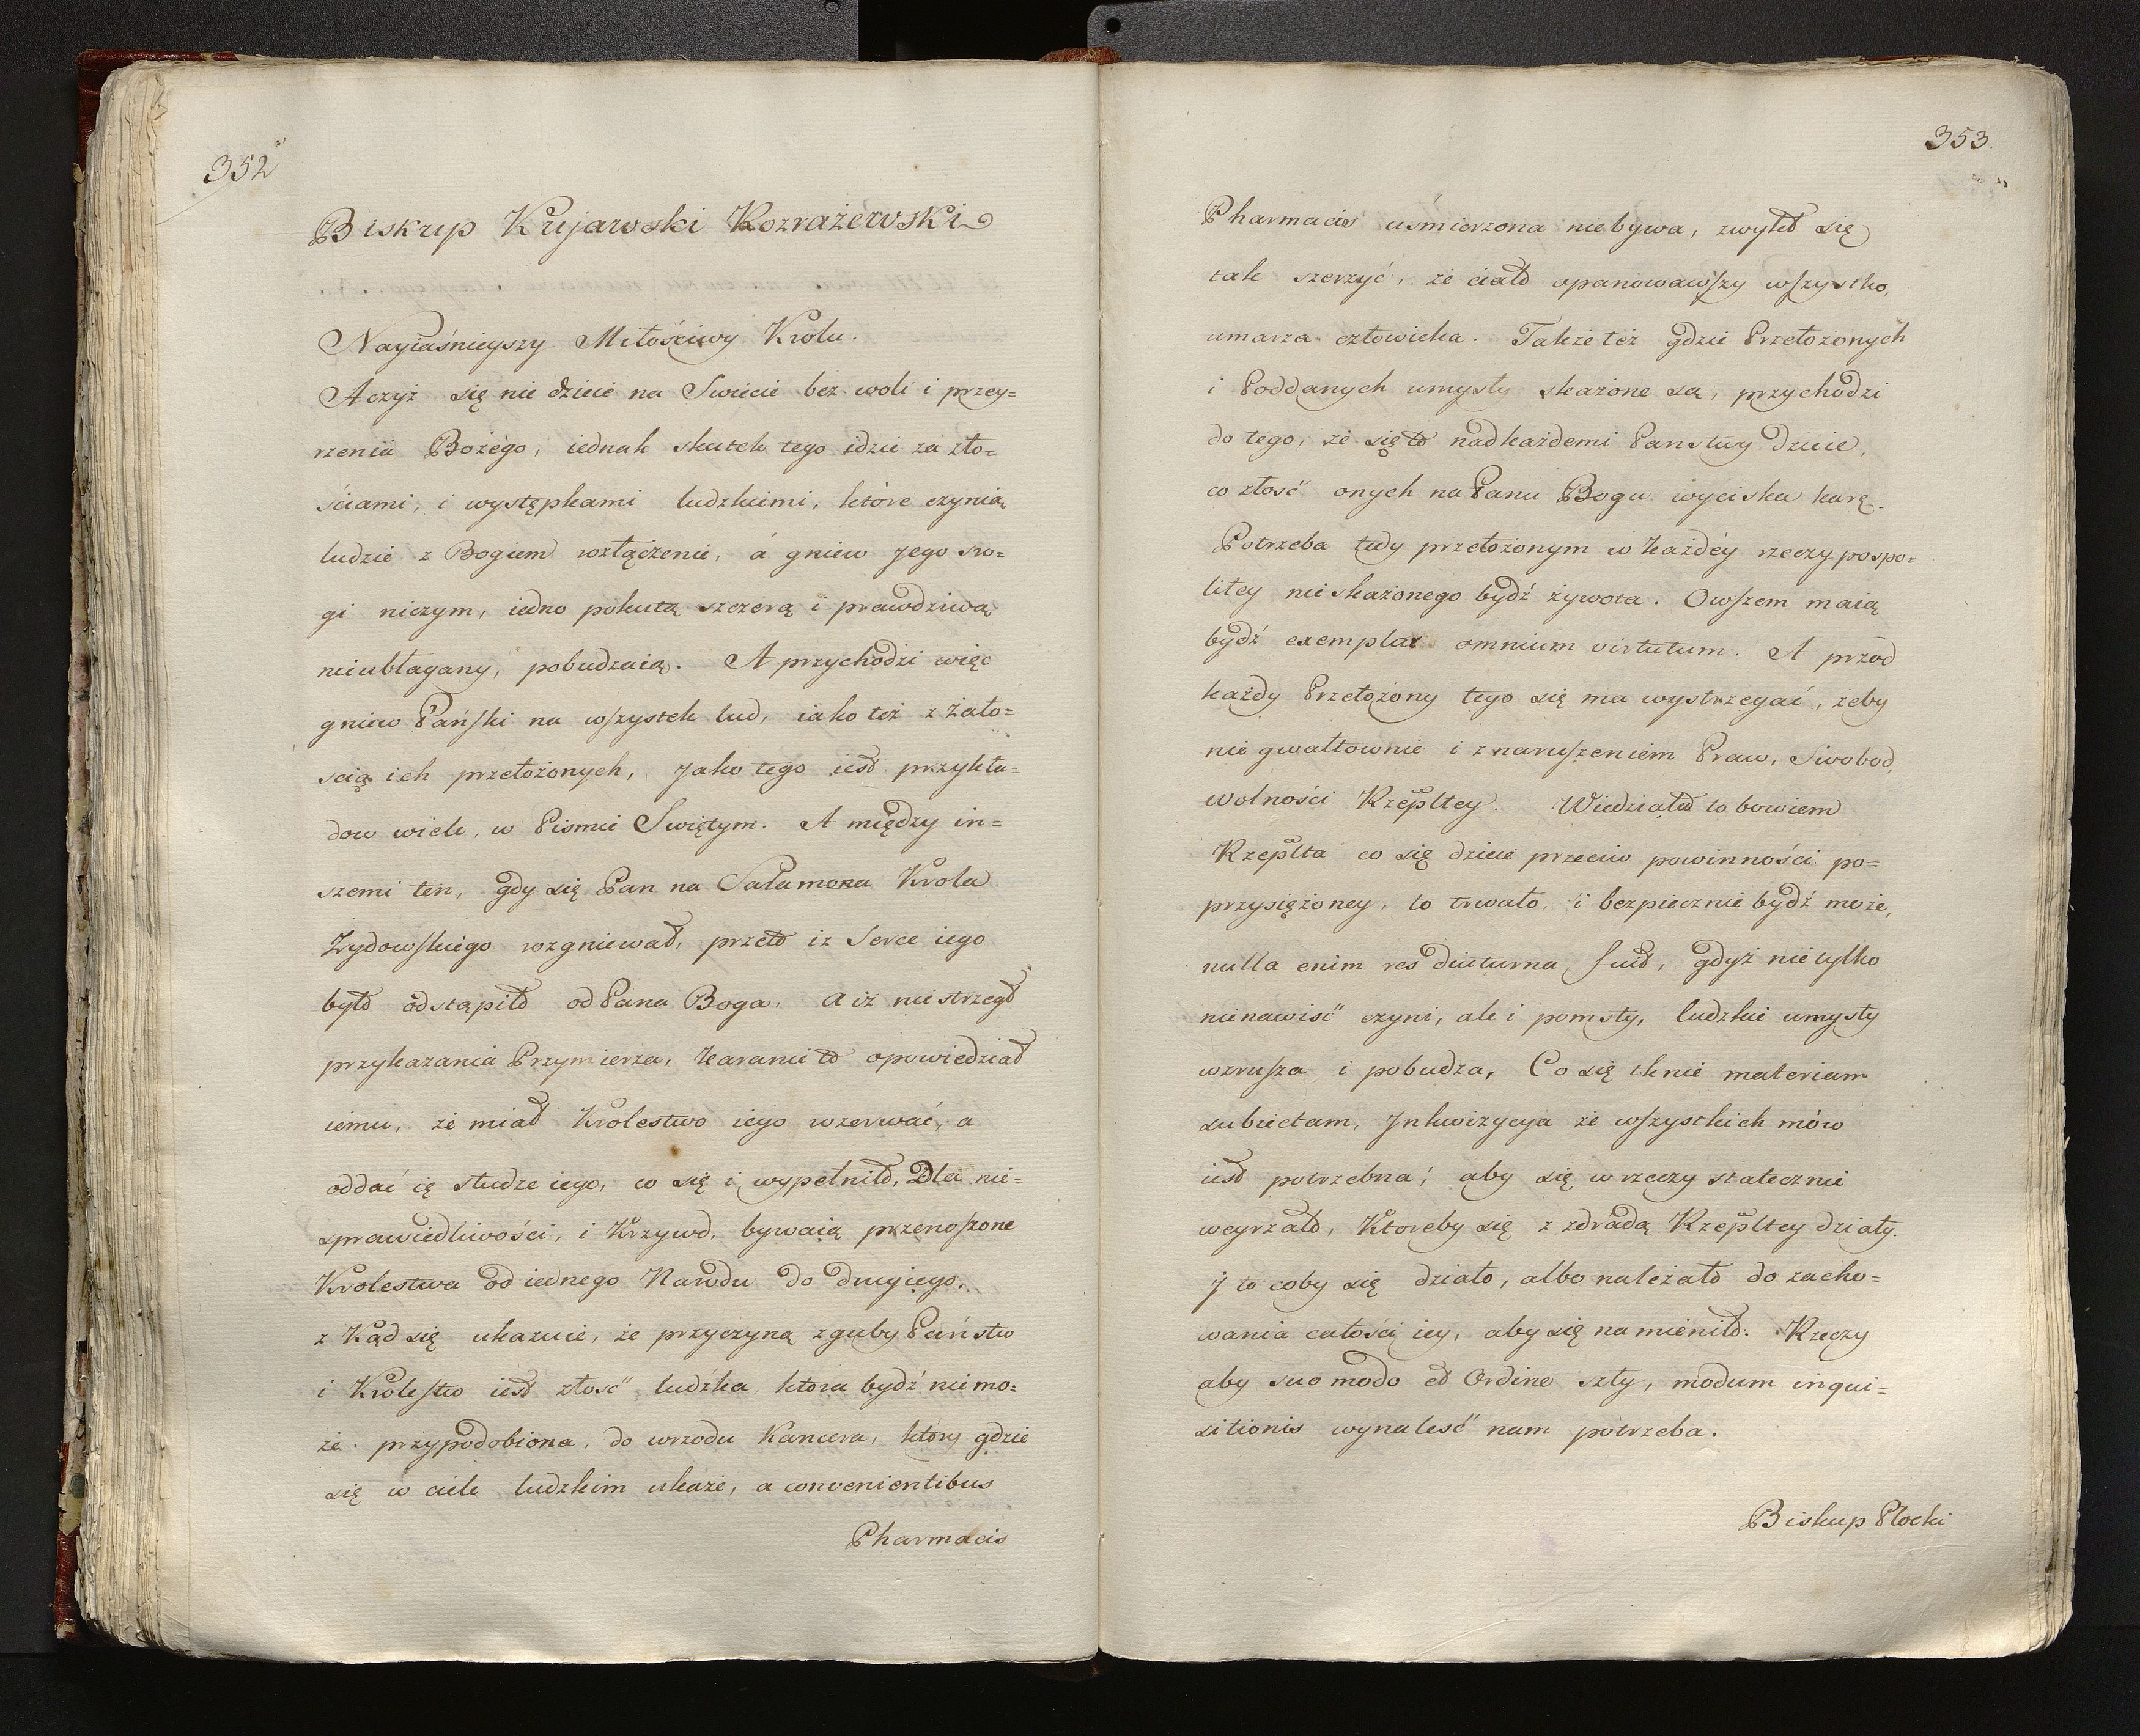 352
Biskup Kujawski Rozrażewski
Nayiaśnieyszy Miłościwy Krolu.
Aczyż się nie dzieie na Swiecie bez woli i przey=
rzenia Bożego, iednak skutek tego idzie za zło=
ściami, i występkami ludzkiemi, które czynią
ludzie z Bogiem rozłączenie, á gniew Jego sro=
gi niczym, iedno pokutą szczerą i prawdziwą
nieubłagany, pobudzaią. A przychodzi więc
gniew Pański na wszystek lud, iako też z żało=
scią ich przełożonych, Jako tego iest przykła=
dow wiele, w Pismie Swiętym. A między in=
szemi ten, gdy się Pan na Salamona Krola
Żydowskiego rozgniewał, przeto iż Serce iego
było odstąpiło od Pana Boga, a iż nie strzegł
przykazania Przymierza, karanie to opowiedział
iemu, że miał Krolestwo iego rozerwać, a
oddać ię słudze iego, co się i wypełniło, Dla nie=
sprawiedliwości, i Krzywd, bywaią przenoszone
Krolestwa od iednego Narodu do drugiego,
z Kąd się ukazuie, że przyczyną zguby Państw
i Krolestw iest złość ludzka, ktora bydź nie mo=
że przypodobiona, do wrzodu Kancera, ktory gdzie
się w ciele ludzkim ukaże, a convenientibus
Pharmacis
353.
Pharmacis uśmierzona niebywa, zwykł się
tak szerzyć, że ciało opanowawszy wszystko,
umarza człowieka. Także też gdzie Przełożonych
i Poddanych umysły skażone są, przychodzi
do tego, że się to nad każdemi Panstwy dzieie,
co złość onych na Panu Bogu wyciska karę.
Potrzeba tedy przełożonym w każdéy rzeczy pospo=
litey nieskażonego bydź żywota. Owszem maią
bydź exemplar omnium virtutum. A przód
każdy Przełożony tego się ma wystrzegać, żeby
nie gwałtownie i z naruszeniem Praw, Swobod,
wolności Rzepltey. Wiedziała to bowiem
Rzeplta co się dzieie przeciw powinności po=
przysiężoney, to trwało, i bezpiecznie bydź może,
nulla enim res diuturna fuit, gdyż nie tylko
nienawisć czyni, ale i pomsty, ludzkie umysły
wzrusza i pobudza, Co się tknie materiam
subiectam, Jnkwizycya że wszystkich mów
iest potrzebna; aby się w rzeczy statecznie
weyrzało, Ktoreby się z zdradą Rzepltey działy.
J to coby się działo, albo należało do zacho=
wania całości iey, aby się namieniło. Rzeczy
aby suo modo et Ordine szły, modum inqui=
sitionis wynaleść nam potrzeba.
Biskup Płocki